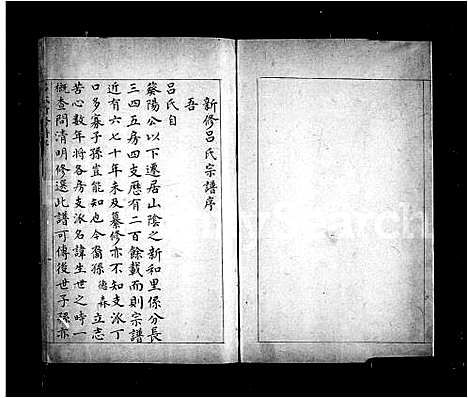 新修呂氏宗譜序
吾
呂氏自
葵陽公以下遷居山陰之新和里係分長
三四五房四支歷有二百餘載而則宗譜
近有六七十年未及纂修亦不知支派丁
口多寡子孫豈能知也今裔孫德森立志
苦心数年將各房支派名諱生世之時一
概查問清明修選此譜可傳後世子孫亦